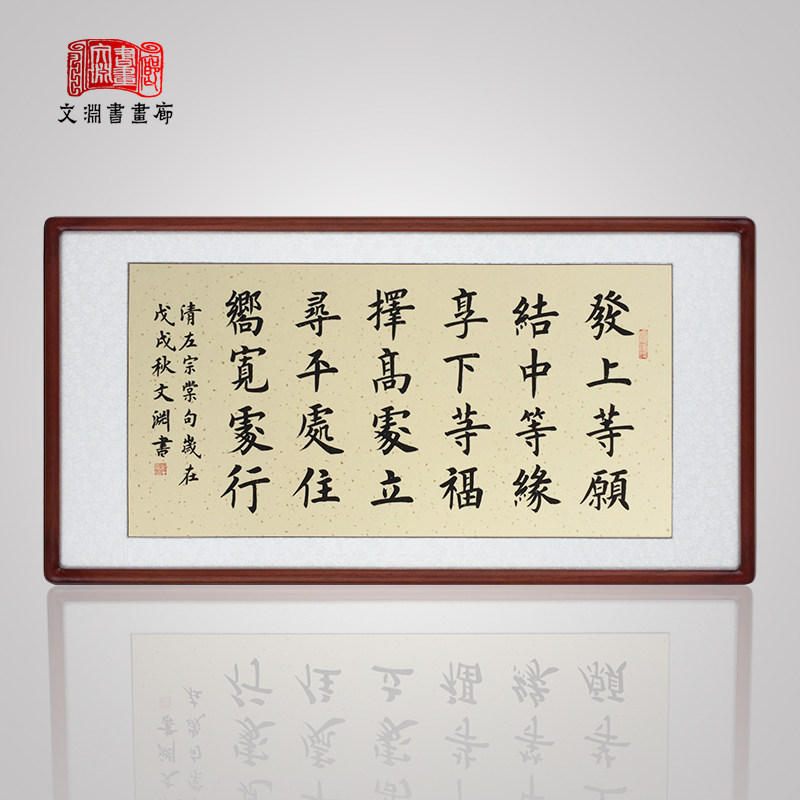 文淵書畫廊
發上等願
結中等緣
享下等福
擇高處立
尋平處住
嚮寬處行
清左宗棠句歲在
戊戌秋文淵書